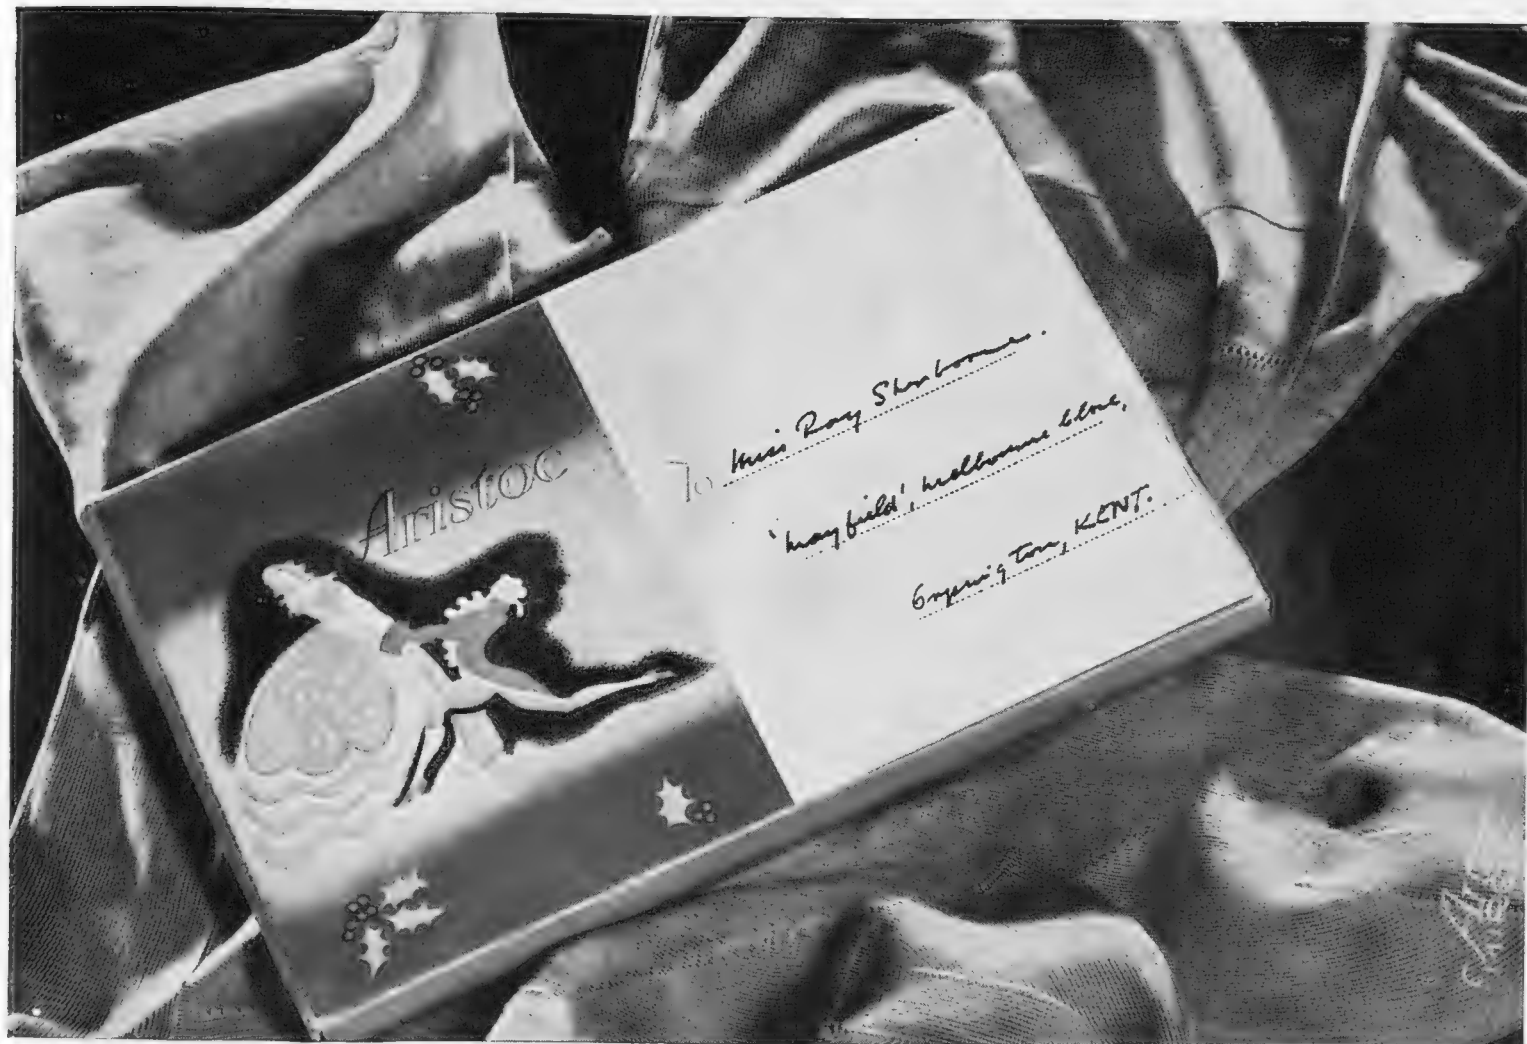 Aristoc
To Miss Ray Sherbourne.
'Mayfield', Melbourne Close,
KENT.